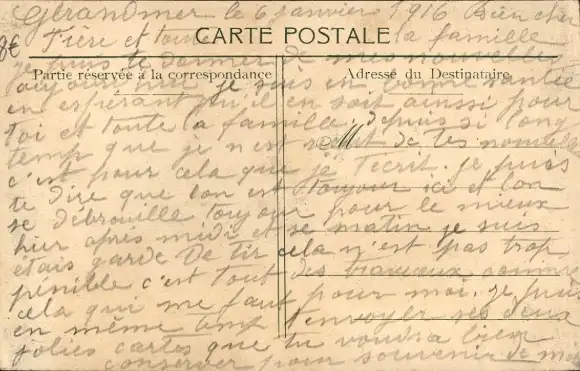 Gérardmer le 6 janvier 1916 Bien cher
Frère et toute la famille
CARTE POSTALE
je puis te donner de mes nouvelles
Partie réservée à la correspondance
Adresse du Destinataire
8€
aujourd'hui je suis en bonne santée
en espérant qu'il en soit ainsi pour
toi et toute la famille, depuis si long
temp que je n'est reçut de tes nouvelles
c'est pour cela que je t'ecrit. je puis
te dire que lon est toujour ici et lon
se débrouille toujour pour le mieux
hier après midi et se matin je suis
étais garde De tir cela n'est pas trop
pénible c'est tout des travaux comme
cela qui me faut pour moi. je puis
en même temp t'envoyer ses deux
jolies cartes que tu voudra bien
conserver pour souvenir de moi